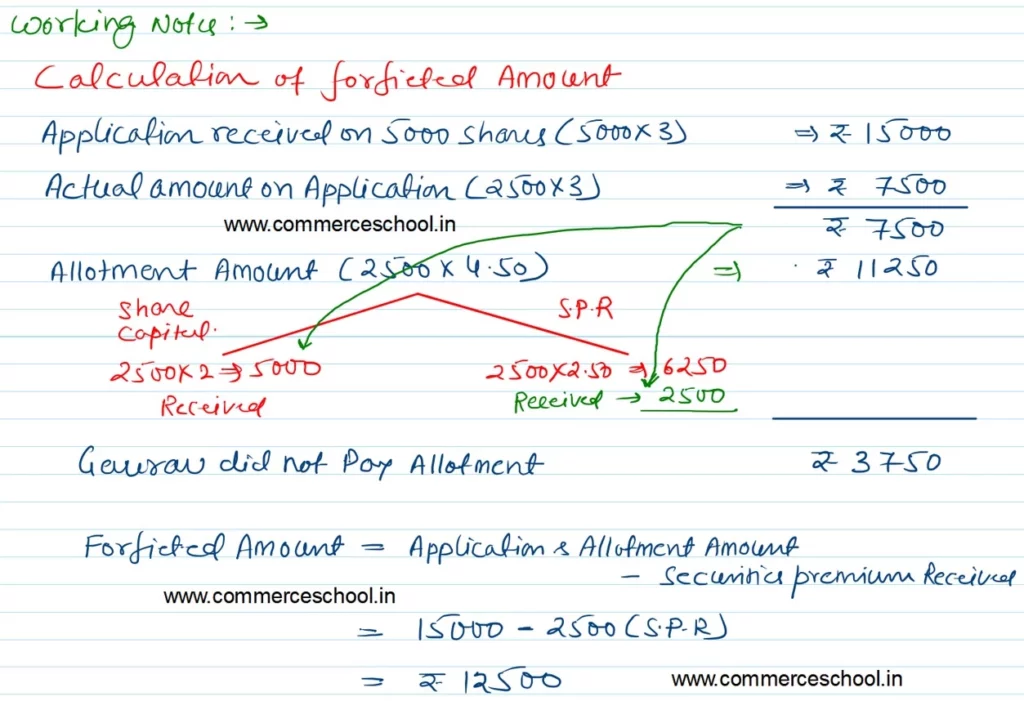 Working Notes : →
Calculation of forficted Amount
Application received on 5000 shares (5000 × 3) ⇒ ₹ 15000
Actual amount on Application (2500 × 3) ⇒ ₹ 7500
www.commerceschool.in ₹ 7500
Allotment Amount (2500 × 4.50) ⇒ ₹ 11250
Share Capital. S.P.R
2500 × 2 ⇒ 5000 2500 × 2.50 ⇒ 6250
Received Received → 2500
Gaurav did not Pay Allotment ₹ 3750
Forficted Amount = Application & Allotment Amount
– Securities premium Received
www.commerceschool.in
= 15000 – 2500 (S.P.R)
= ₹ 12500 www.commerceschool.in